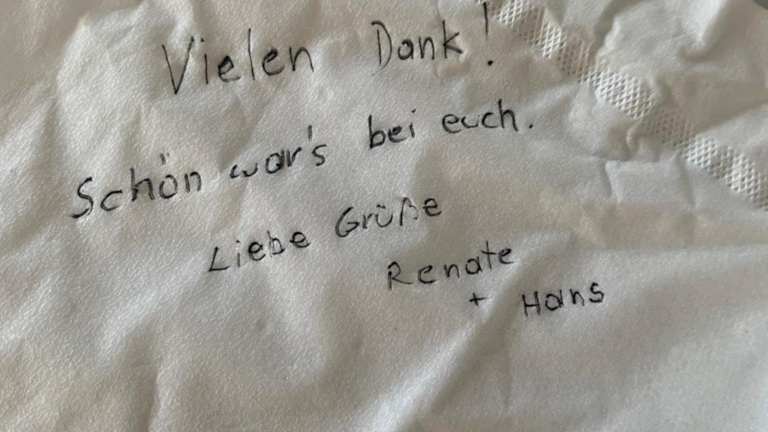 Vielen Dank!
Schön war's bei euch.
Liebe Grüße
Renate
+ Hans